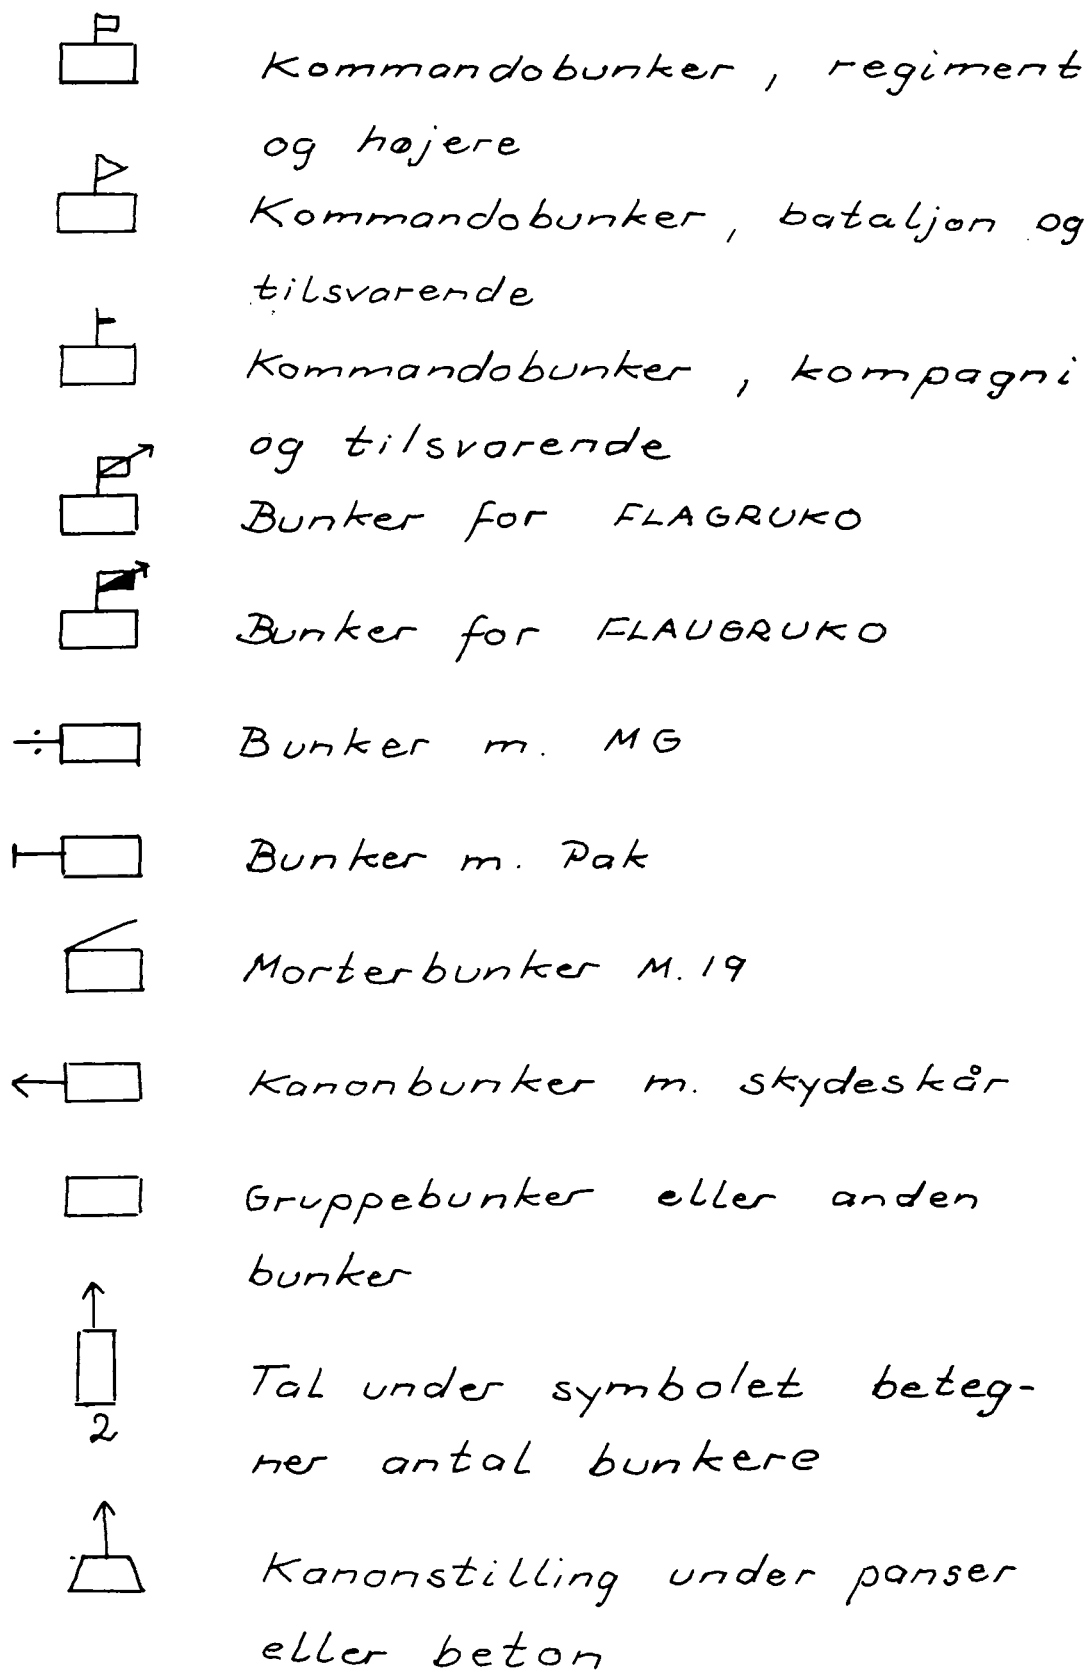 Kommandobunker, regiment
og højere
Kommandobunker, bataljon og
tilsvarende
Kommandobunker, kompagni
og tilsvarende
Bunker for FLAGRUKO
Bunker for FLAUGRUKO
Bunker m. MG
Bunker m. Pak
Morterbunker M.19
Kanonbunker m. skydeskår
Gruppebunker eller anden
bunker
Tal under symbolet beteg-
2
ner antal bunkere
Kanonstilling under panser
eller beton